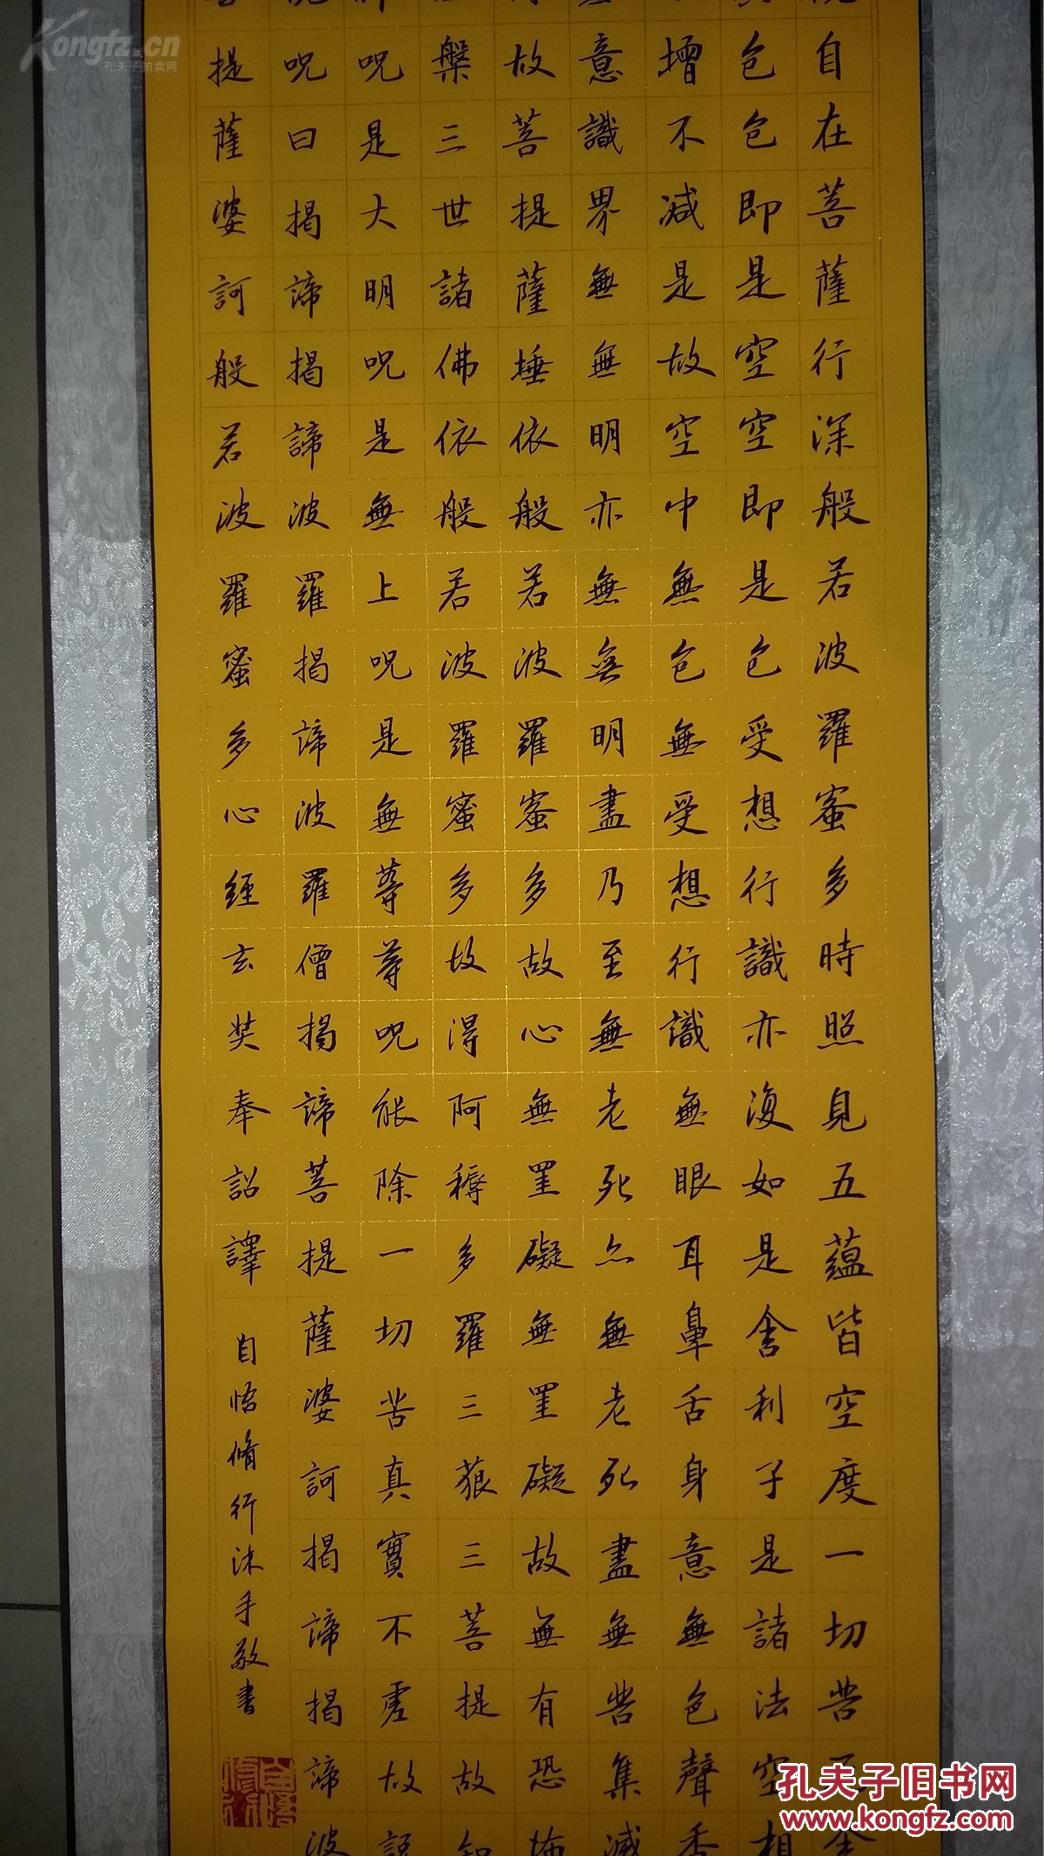 自在菩薩行深般若波羅蜜多時照見五蘊皆空度一切苦
色色即是空空即是色受想行識亦復如是舍利子是諸法空相
增不減是故空中無色無受想行識無眼耳鼻舌身意無色聲香
意識界無無明亦無無明盡乃至無老死亦無老死盡無苦集滅
故菩提薩埵依般若波羅蜜多故心無罣礙無罣礙故無有恐怖
槃三世諸佛依般若波羅蜜多故得阿耨多羅三藐三菩提故知
呪是大明呪是無上呪是無等等呪能除一切苦真實不虛故說
呪曰揭諦揭諦波羅揭諦波羅僧揭諦菩提薩婆訶揭諦揭諦波
提薩婆訶般若波羅蜜多心經玄奘奉詔譯
自悟脩行沐手敬書
Kongfz.cn
孔夫子拍卖网
孔夫子旧书网
KONGFZ.COM